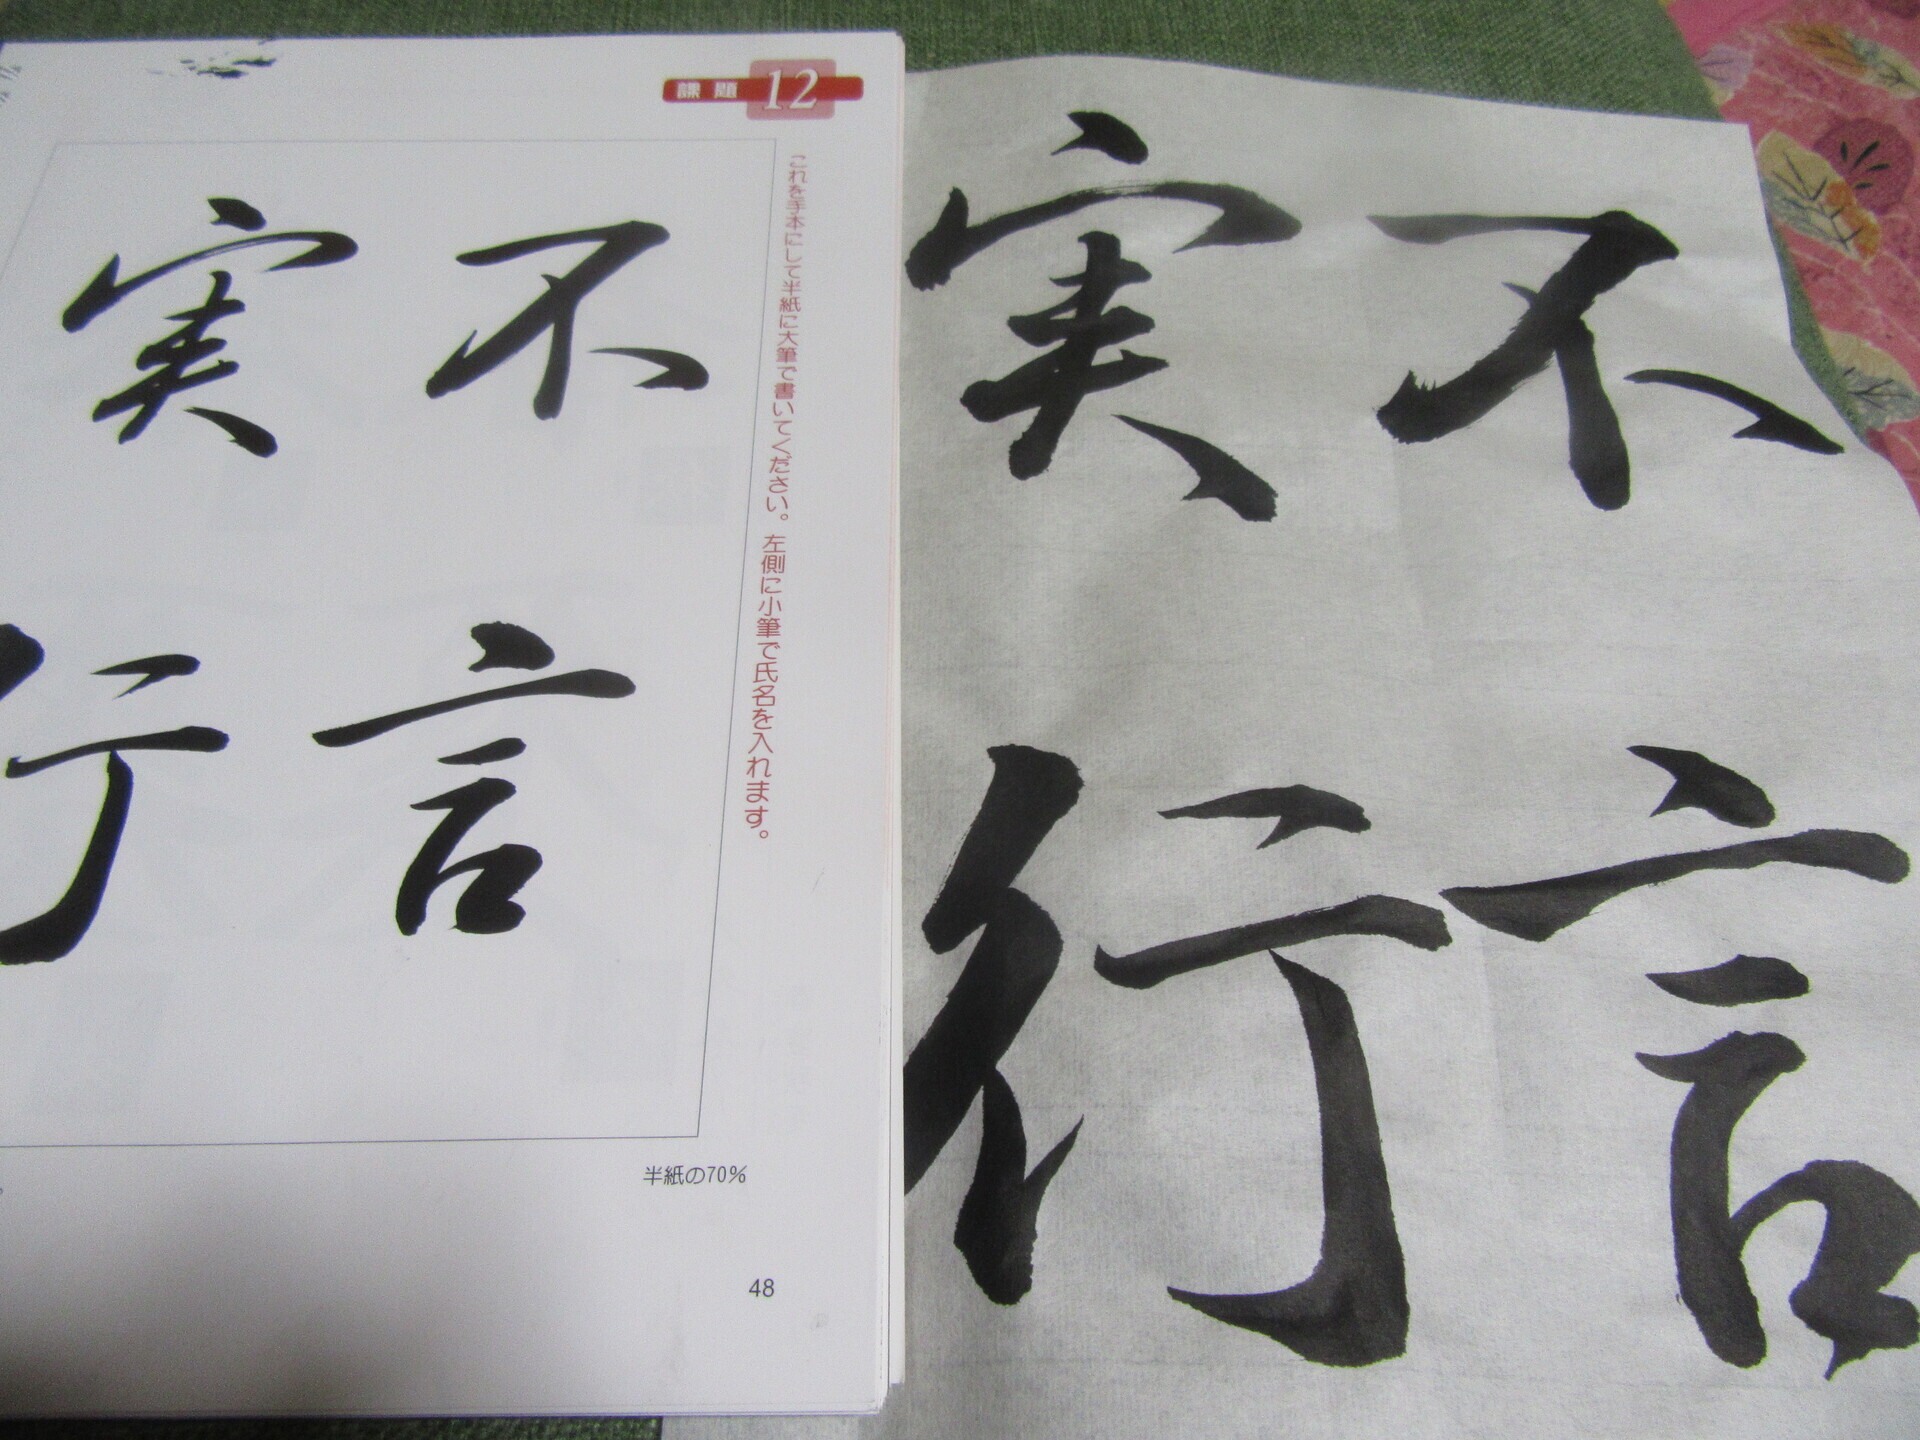 課題 12
これを手本にして半紙に大筆で書いてください。左側に小筆で氏名を入れます。
不言
実行
半紙の70%
48
不言
実行